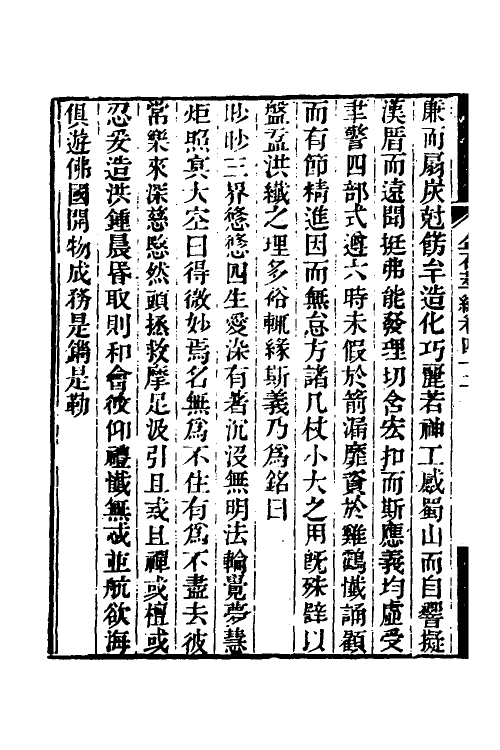 廉而扇炭兙餝牟造化巧麗若神工感蜀山而自響擬
漢厝而遠聞挺弗能發理切舍宏扣而斯應義均虛受
聿警四部式遵六時未假於箭漏靡資於雞鶴懺誦顧
而有節精進因而無怠方諸几杖小大之用旣殊辟以
盤盂洪纖之理多裕輒緣斯義乃爲銘曰
眇眇三界悠悠四生愛染有著沉沒無明法輪覺夢慧
炬照冥大空曰得微妙焉名無爲不住有爲不盡去彼
常樂來深慈愍然頭拯救摩足汲引且或且禪或檀或
忍爰造洪鍾晨昏取則和會彼仰禮懺無忒並航欲海
俱遊佛國開物成務是鐫是勒
金石萃編卷四十二